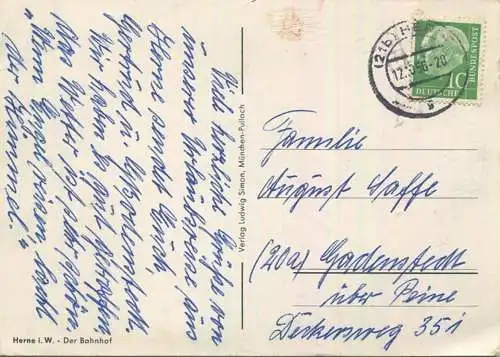 Viele herzliche Grüße von
unserer Urlaubsreise, aus
Herne sendet Euch,
Gertrud u.
Wir haben es gut getroffen
das Wetter ist sehr schön
"Wenn Engel reisen, lacht
der Himmel."
Herne i. W. - Der Bahnhof
Verlag Ludwig Simon, München-Pullach
(21b) HE
12.5.56-20
10
DEUTSCHE BUNDESPOST
Familie
August Saffe
(20a) Gadenstedt
über Peine
Deckersweg 35 i